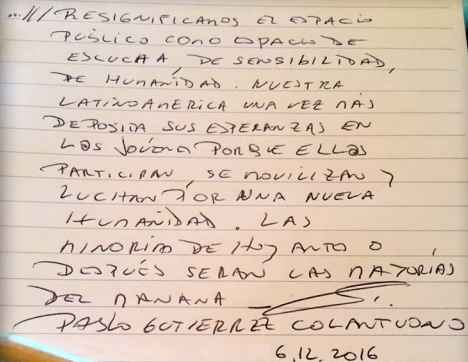 ...// RESIGNIFICAMOS EL ESPACIO
PÚBLICO COMO ESPACIO DE
ESCUCHA, DE SENSIBILIDAD,
DE HUMANIDAD. NUESTRA
LATINOAMERICA UNA VEZ MÁS
DEPOSITA SUS ESPERANZAS EN
L@S JÓVENES PORQUE ELL@S
PARTICIPAN, SE MOVILIZAN Y
LUCHAN POR UNA NUEVA
HUMANIDAD. LAS
MINORÍAS DE HOY ANTO O
DESPUÉS SERÁN LAS MAYORÍAS
DEL MAÑANA
PABLO GUTIERREZ COLANTUONO
6.12.2016